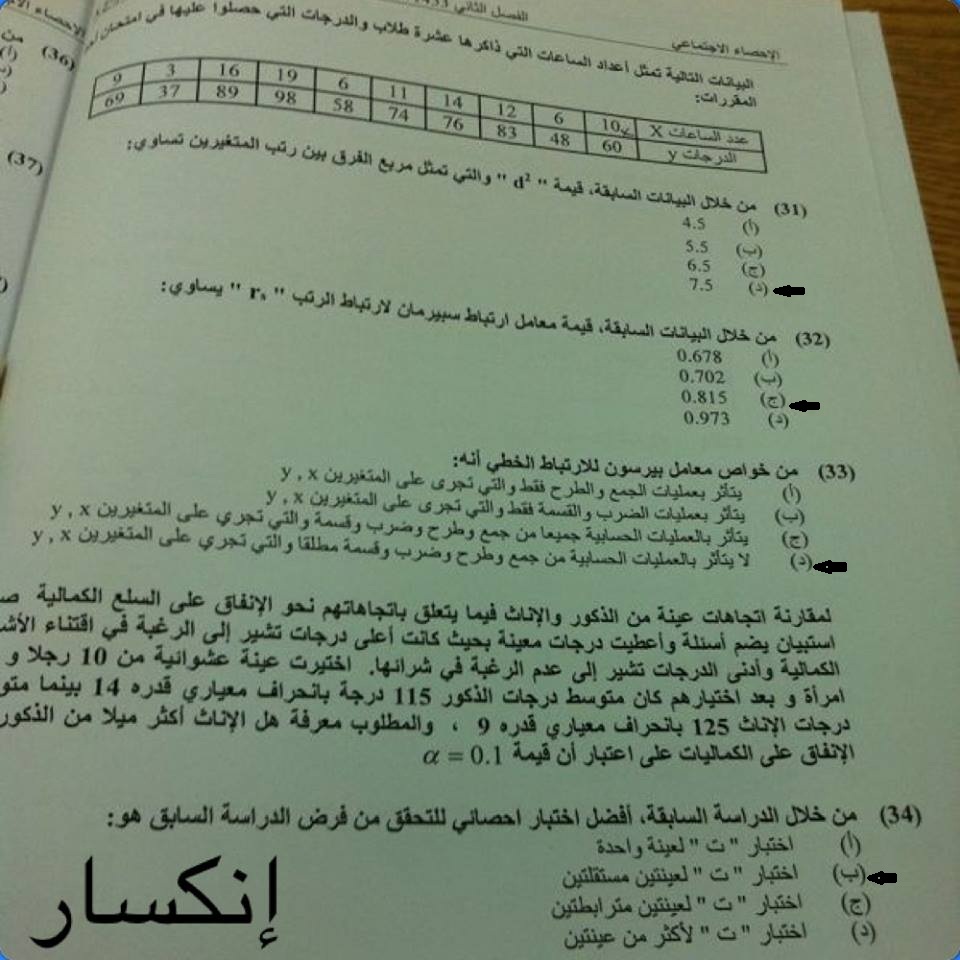 الفصل الثاني
الإحصاء الاجتماعي
البيانات التالية تمثل أعداد الساعات التي ذاكرها عشرة طلاب والدرجات التي حصلوا عليها في امتحان
المقررات:
عدد الساعات X 10 6 12 14 11 6 19 16 3 9
الدرجات y 60 48 83 76 74 58 98 89 37 69
(31) من خلال البيانات السابقة، قيمة " d² " والتي تمثل مربع الفرق بين رتب المتغيرين تساوي:
(أ) 4.5
(ب) 5.5
(ج) 6.5
(د) 7.5
(32) من خلال البيانات السابقة، قيمة معامل ارتباط سبيرمان لارتباط الرتب " rₛ " يساوي:
(أ) 0.678
(ب) 0.702
(ج) 0.815
(د) 0.973
(33) من خواص معامل بيرسون للارتباط الخطي أنه:
(أ) يتأثر بعمليات الجمع والطرح فقط والتي تجرى على المتغيرين y , x
(ب) يتأثر بعمليات الضرب والقسمة فقط والتي تجرى على المتغيرين y , x
(ج) يتأثر بالعمليات الحسابية جميعا من جمع وطرح وضرب وقسمة والتي تجري على المتغيرين y , x
(د) لا يتأثر بالعمليات الحسابية من جمع وطرح وضرب وقسمة مطلقا والتي تجري على المتغيرين y , x
لمقارنة اتجاهات عينة من الذكور والإناث فيما يتعلق باتجاهاتهم نحو الإنفاق على السلع الكمالية
استبيان يضم أسئلة وأعطيت درجات معينة بحيث كانت أعلى درجات تشير إلى الرغبة في اقتناء
الكمالية وأدنى الدرجات تشير إلى عدم الرغبة في شرائها. اختيرت عينة عشوائية من 10 رجلا و
امرأة و بعد اختيارهم كان متوسط درجات الذكور 115 درجة بانحراف معياري قدره 14 بينما
درجات الإناث 125 بانحراف معياري قدره 9 ، والمطلوب معرفة هل الإناث أكثر ميلا من الذكور
الإنفاق على الكماليات على اعتبار أن قيمة α = 0.1
(34) من خلال الدراسة السابقة، أفضل اختبار احصائي للتحقق من فرض الدراسة السابق هو:
(أ) اختبار " ت " لعينة واحدة
(ب) اختبار " ت " لعينتين مستقلتين
(ج) اختبار " ت " لعينتين مترابطتين
(د) اختبار " ت " لأكثر من عينتين
إنكسار
(36)
من
(أ)
(37)